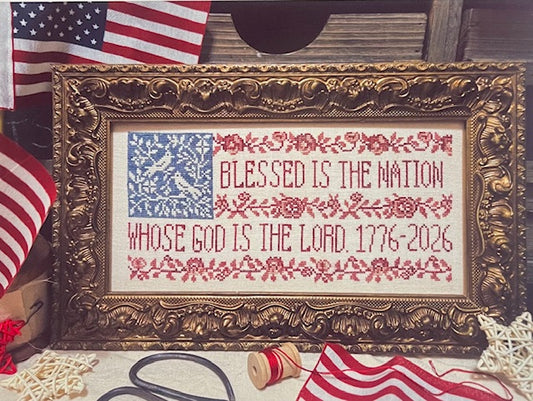 BLESSED IS THE NATION
WHOSE GOD IS THE LORD. 1776-2026